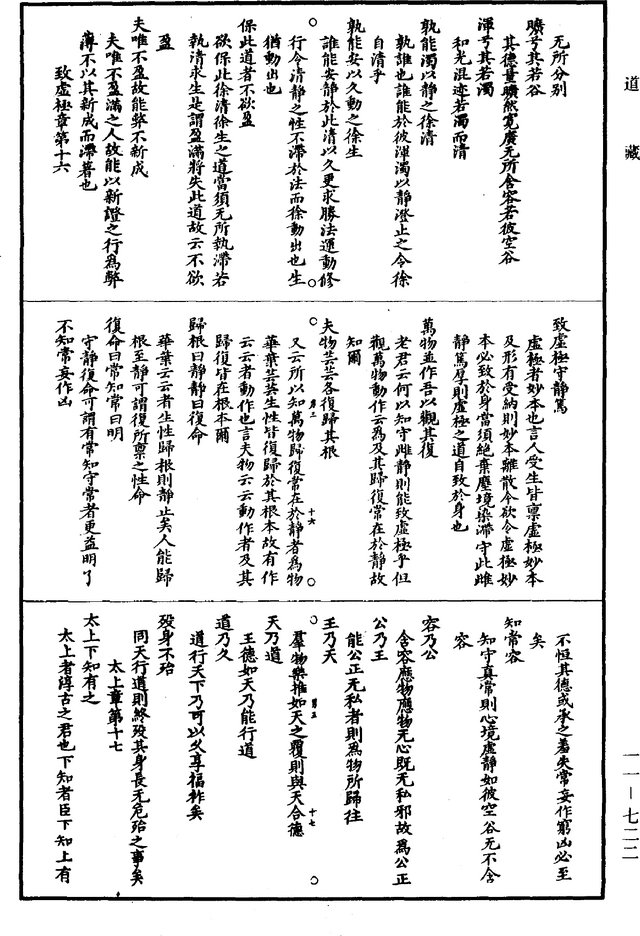 道藏
无所分别
曠兮其若谷
其德量曠然寬廣无所含容若彼空谷
渾兮其若濁
和光混迹若濁而清
孰能濁以靜之徐清
孰誰也誰能於彼渾濁以靜澄止之令徐
自清乎
孰能安以久動之徐生
誰能安靜於此清以久更求勝法運動修
行令清靜之性不滯於法而徐動出也生
猶動出也
保此道者不欲盈
欲保此徐清徐生之道當須无所執滯若
執清求生是謂盈滿將失此道故云不欲
盈
夫唯不盈故能弊不新成
夫唯不盈滿之人故能以新證之行爲弊
薄不以其新成而滯著也
致虛極章第十六
致虛極守靜篤
虛極者妙本也言人受生皆稟虛極妙本
及形有受納則妙本離散今欲令虛極妙
本必致於身當須絶棄塵境染滯守此雌
靜篤厚則虛極之道自致於身也
萬物並作吾以觀其復
老君云何以知守雌靜則能致虛極乎但
觀萬物動作云爲及其歸復常在於靜故
知爾
夫物芸芸各復歸其根
又云所以知萬物歸復常在於靜者爲物
華葉芸芸生性皆復歸於其根本故有作
云云者動作也言夫物云云動作者及其
歸復皆在根本爾
歸根曰靜靜曰復命
華葉云云者生性歸根則靜止矣人能歸
根至靜可謂復所稟之性命
復命曰常知常曰明
守靜復命可謂有常知守常者更益明了
不知常妄作凶
不恒其德或承之羞失常妄作窮凶必至
矣
知常容
知守真常則心境虛靜如彼空谷无不含
容
容乃公
含容應物應物无心既无私邪故爲公正
公乃王
能公正无私者則爲物所歸往
王乃天
羣物樂推如天之覆則與天合德
天乃道
王德如天乃能行道
道乃久
道行天下乃可以久享福祚矣
殁身不殆
同天行道則終殁其身長无危殆之事矣
太上章第十七
太上下知有之
太上者淳古之君也下知者臣下知上有
一一－七二二